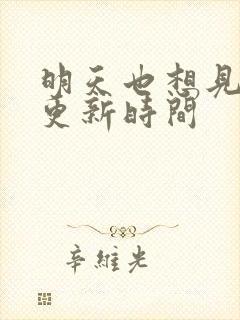 明天也想見
更新時間
辛維光